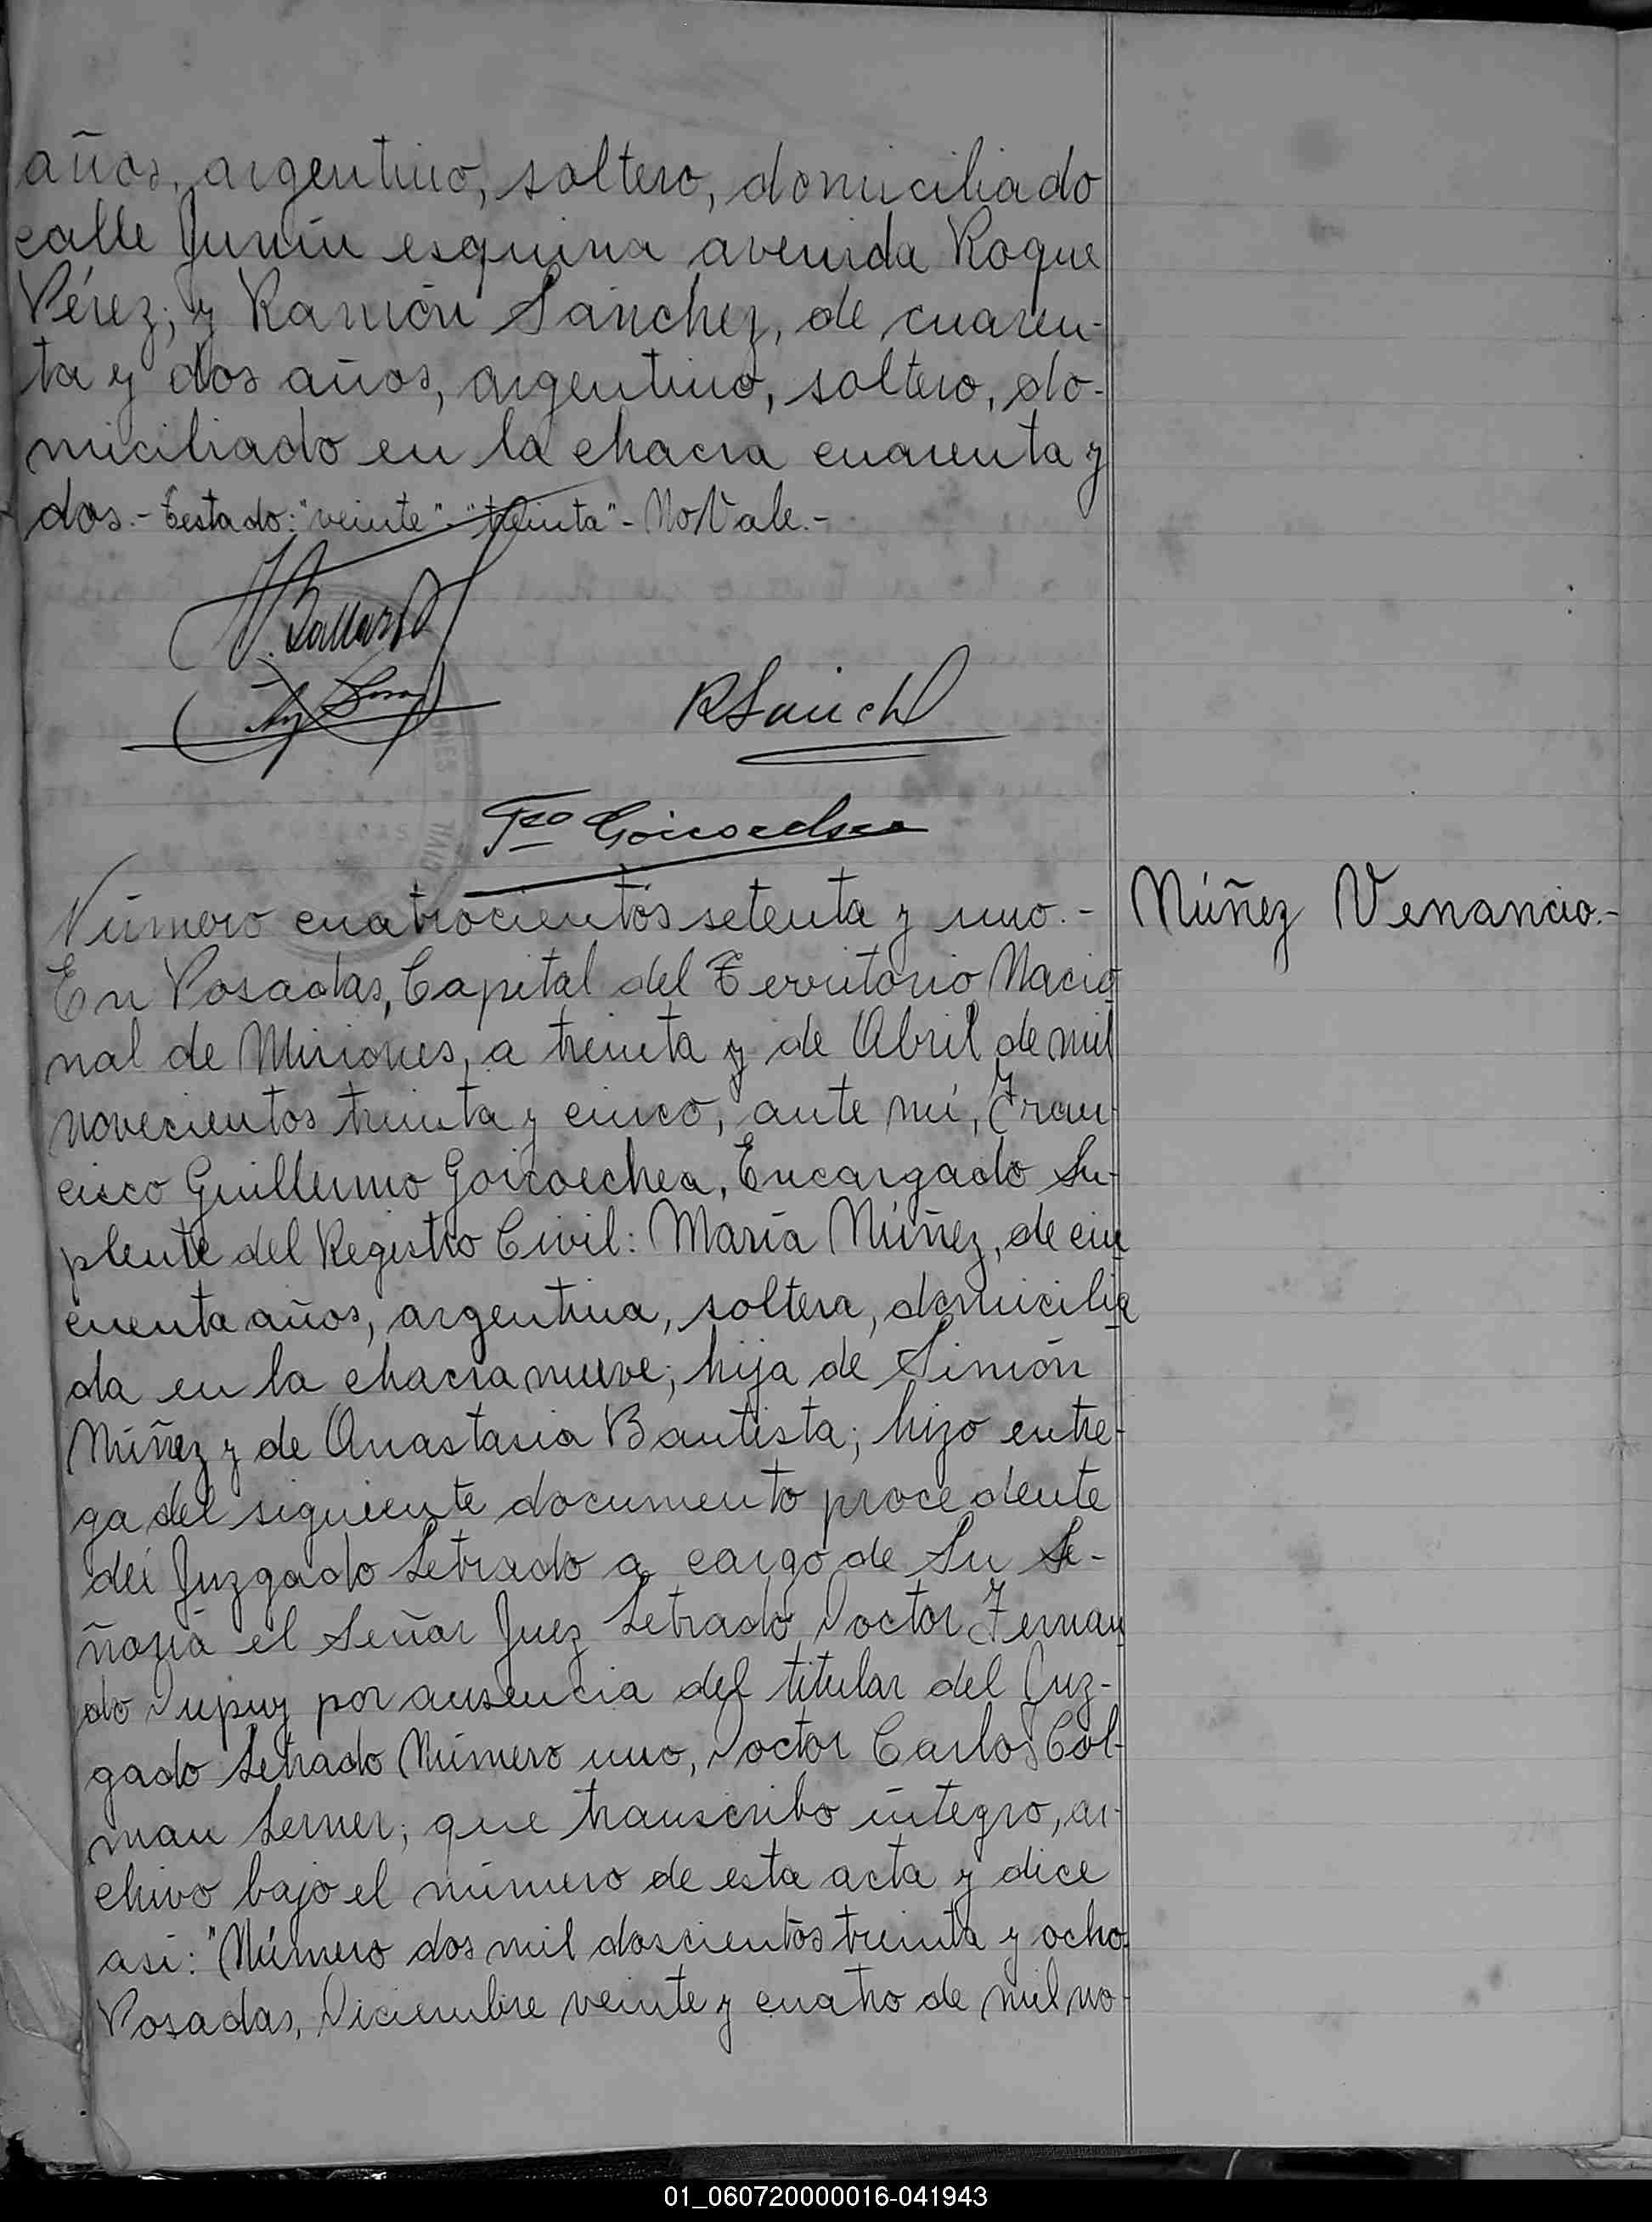 años, argentino, soltero, domiciliado
calle Junín esquina avenida Roque
Pérez; y Ramón Sánchez, de cuaren-
ta y dos años, argentino, soltero, do-
miciliado en la chacra cuarenta y
dos.- Testado: "veinte"- "treinta"- No Vale.-
R Sánch
Fco Goicoechea
Número cuatrocientos setenta y uno.-
Núñez Venancio.-
En Posadas, Capital del Territorio Nacio
nal de Misiones, a treinta y de Abril de mil
novecientos treinta y cinco, ante mí, Fran-
cisco Guillermo Goicoechea, Encargado Su-
plente del Registro Civil: María Núñez, de cin
cuenta años, argentina, soltera, domicilia
da en la chacra nueve; hija de Simón
Núñez y de Anastasia Bautista; hizo entre-
ga del siguiente documento procedente
del Juzgado Letrado a cargo de Su Se-
ñoría el Señor Juez Letrado Doctor Fernan
do Dupuy por ausencia del titular del Juz-
gado Letrado Número uno, Doctor Carlos Col-
man Lerner; que transcribo íntegro, ar-
chivo bajo el número de esta acta y dice
así: "Número dos mil doscientos treinta y ocho.
Posadas, Diciembre veinte y cuatro de mil no-
01_060720000016-041943